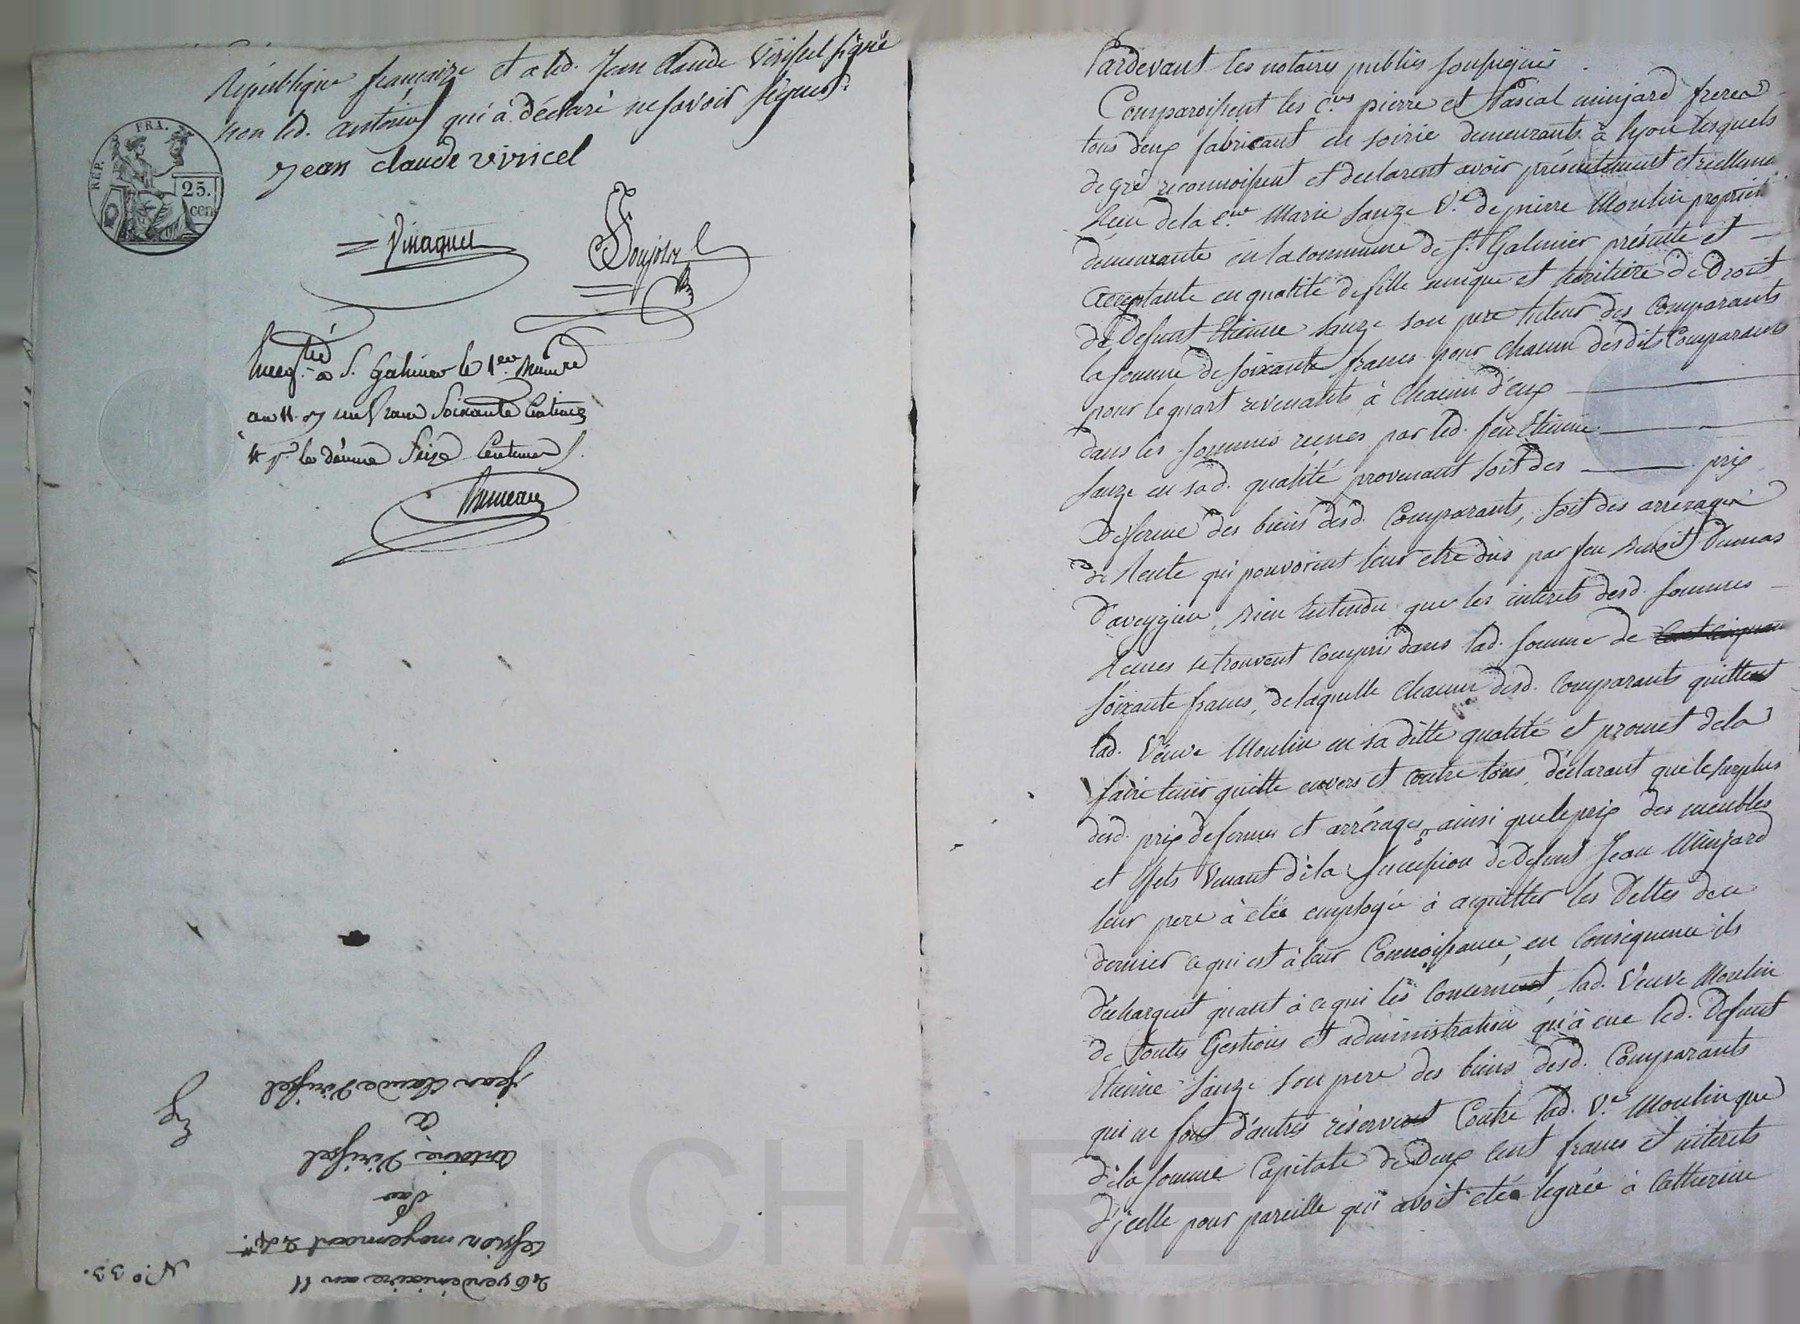 République française et a led. Jean Claude Virissel signé
non led. antoine qui à déclaré ne savoir signer.
jean claude viricel
REP. FRA.
25.
cen
Vinaguet
à S. Galmier le 1er
an 11. un franc Soixante Centimes
Seize Centimes
26 vendémiaire an 11
Cession moyennant
Par
antoine Virissel
a
Jean Claude Virissel
N.o 33.
Pardevant les notaires publics soussignés
Comparoissent les C.ens pierre et Pascal minjard freres
tous deux fabricant en soirie demeurants à lyon lesquels
de gré reconnoissent et declarent avoir présentement et réellement
Reçu de la C.ne Marie Sauze V.e de pierre Moulin propriét
demeurante en la commune de S.t Galmier présente et
acceptante en qualité de fille unique et héritiere de Droit
de Defunt Etienne Sauze son pere tuteur des Comparants
la somme de soixante francs pour chacun desdits Comparants
pour le quart revenants à Chacun d'eux
dans les sommes reçues par led. feu Etienne
Sauze en sad. qualité provenant soit des prix
de ferme des biens desd. Comparants, soit des arrérages
de Rente qui pouvoient leur etre dûs par feu Benoit Dumas
D'aveyzieu, bien entendu que les intérets desd. sommes
Reçues se trouvent compris dans lad. somme de
soixante francs, de laquelle Chacun desd. Comparants quittent
lad. Veuve Moulin en sa ditte qualité et promet de la
faire tenir quitte envers et contre tous, déclarant que le surplus
desd. prix de fermes et arrérages, ainsi que le prix des meubles
et effets Venant de la succession de Defunt Jean Minjard
leur pere à été employé à acquitter les Dettes de ce
dernier ce qui est à leur Connoissance, en Conséquence ils
déchargent quant à ce qui les concernent, lad. Veuve Moulin
de toutes Gestions et administration qu'à eue led. Defunt
Etienne Sauze son pere des biens desd. Comparants
qui ne font d'autres réserves Contre lad. V.e Moulin que
de la somme Capitale de Deux cent francs et intérets
d'icelle pour pareille qui avoit été leguée à Catherine
Pascal CHAREYRON